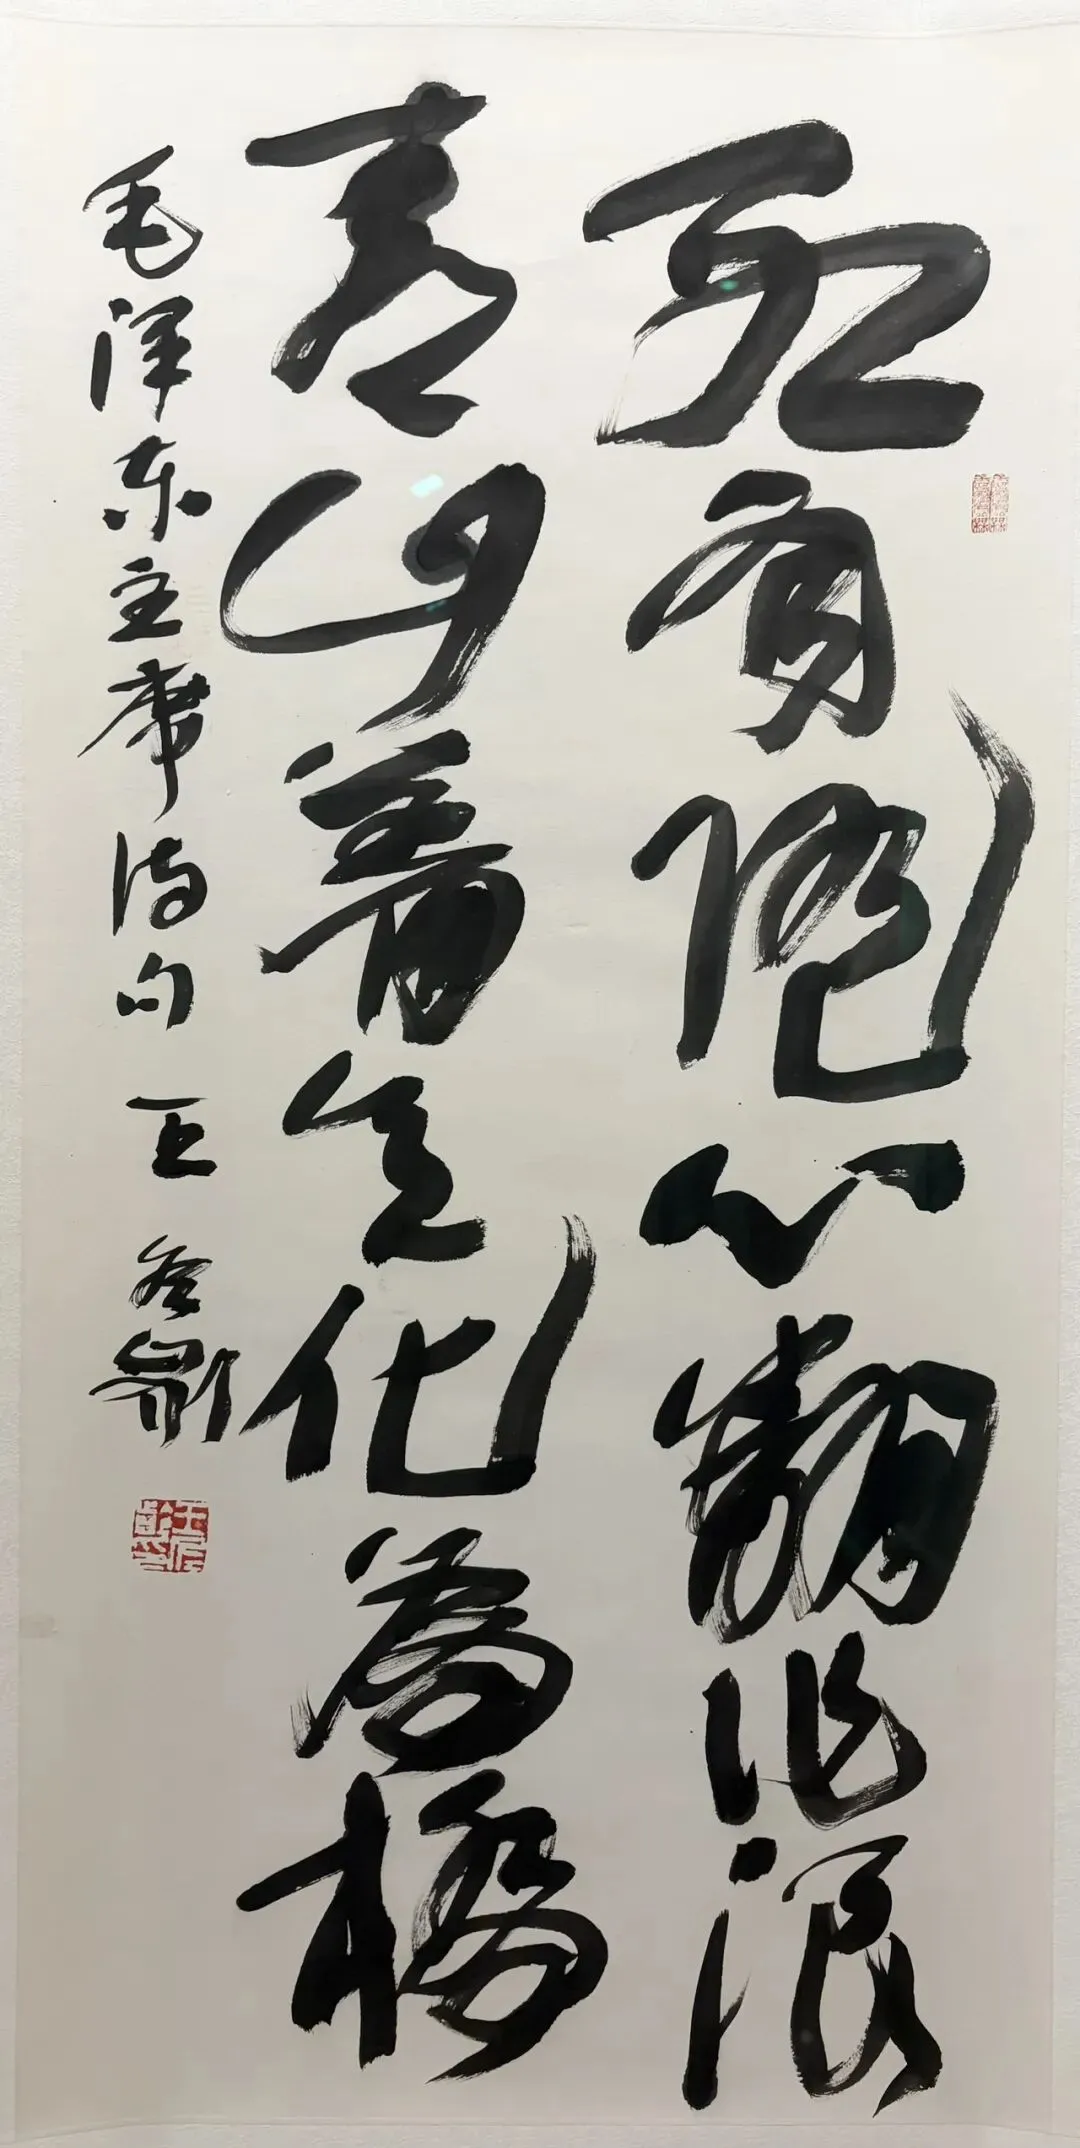 红雨随心翻作浪
青山着意化为桥
毛泽东主席诗句 王冬龄